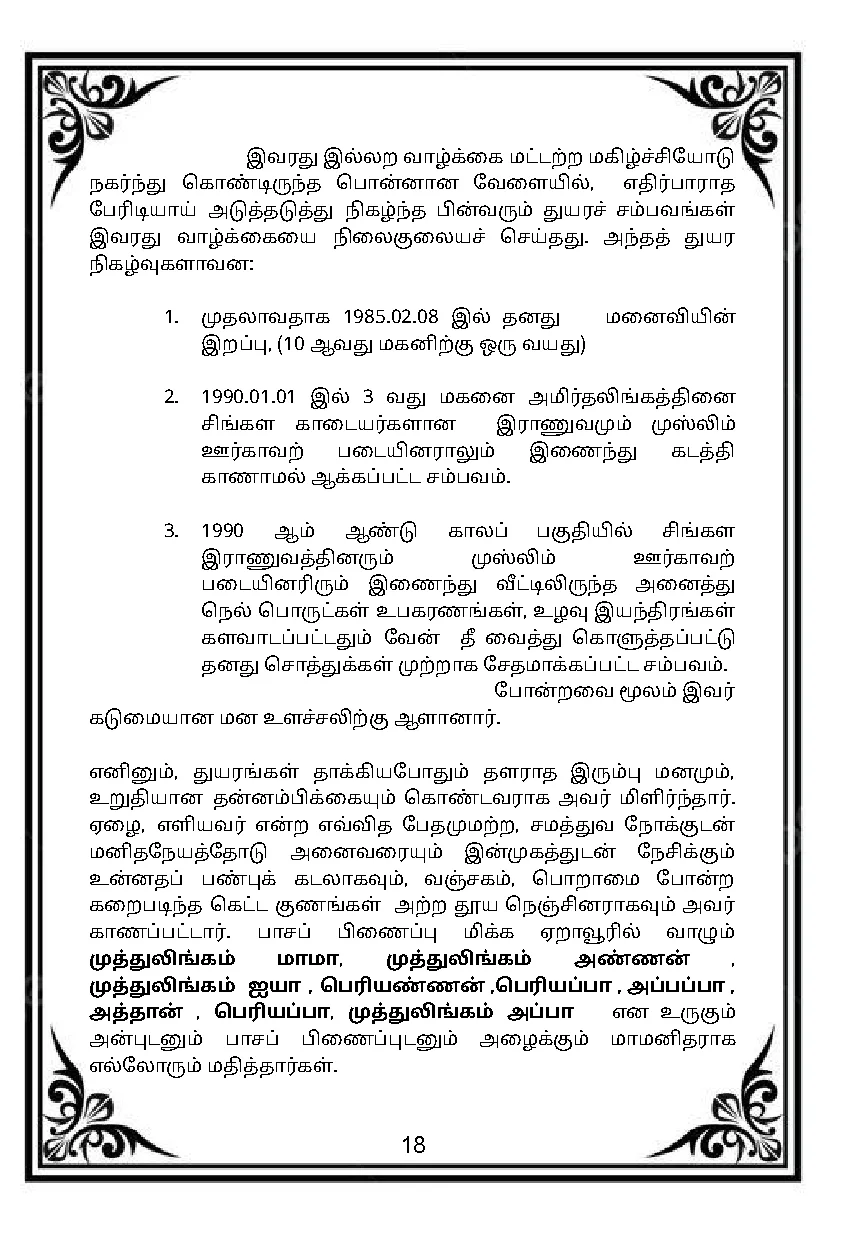 இவரது இல்லற வாழ்க்கை மட்டற்ற மகிழ்ச்சியோடு
நகர்ந்து கொண்டிருந்த பொன்னான வேளையில், எதிர்பாராத
பேரிடியாய் அடுத்தடுத்து நிகழ்ந்த பின்வரும் துயரச் சம்பவங்கள்
இவரது வாழ்க்கையை நிலைகுலையச் செய்தது. அந்தத் துயர
நிகழ்வுகளாவன:
1. முதலாவதாக 1985.02.08 இல் தனது மனைவியின்
இறப்பு, (10 ஆவது மகனிற்கு ஒரு வயது)
2. 1990.01.01 இல் 3 வது மகனை அமிர்தலிங்கத்தினை
சிங்கள காடையர்களான இராணுவமும் முஸ்லிம்
ஊர்காவற் படையினராலும் இணைந்து கடத்தி
காணாமல் ஆக்கப்பட்ட சம்பவம்.
3. 1990 ஆம் ஆண்டு காலப் பகுதியில் சிங்கள
இராணுவத்தினரும் முஸ்லிம் ஊர்காவற்
படையினரிரும் இணைந்து வீட்டிலிருந்த அனைத்து
நெல் பொருட்கள் உபகரணங்கள், உழவு இயந்திரங்கள்
களவாடப்பட்டதும் வேன் தீ வைத்து கொளுத்தப்பட்டு
தனது சொத்துக்கள் முற்றாக சேதமாக்கப்பட்ட சம்பவம்.
போன்றவை மூலம் இவர்
கடுமையான மன உளச்சலிற்கு ஆளானார்.
எனினும், துயரங்கள் தாக்கியபோதும் தளராத இரும்பு மனமும்,
உறுதியான தன்னம்பிக்கையும் கொண்டவராக அவர் மிளிர்ந்தார்.
ஏழை, எளியவர் என்ற எவ்வித பேதமுமற்ற, சமத்துவ நோக்குடன்
மனிதநேயத்தோடு அனைவரையும் இன்முகத்துடன் நேசிக்கும்
உன்னதப் பண்புக் கடலாகவும், வஞ்சகம், பொறாமை போன்ற
கறைபடிந்த கெட்ட குணங்கள் அற்ற தூய நெஞ்சினராகவும் அவர்
காணப்பட்டார். பாசப் பிணைப்பு மிக்க ஏறாவூரில் வாழும்
முத்துலிங்கம் மாமா, முத்துலிங்கம் அண்ணன் ,
முத்துலிங்கம் ஐயா , பெரியண்ணன் ,பெரியப்பா , அப்பப்பா ,
அத்தான் , பெரியப்பா, முத்துலிங்கம் அப்பா என உருகும்
அன்புடனும் பாசப் பிணைப்புடனும் அழைக்கும் மாமனிதராக
எல்லோரும் மதித்தார்கள்.
18